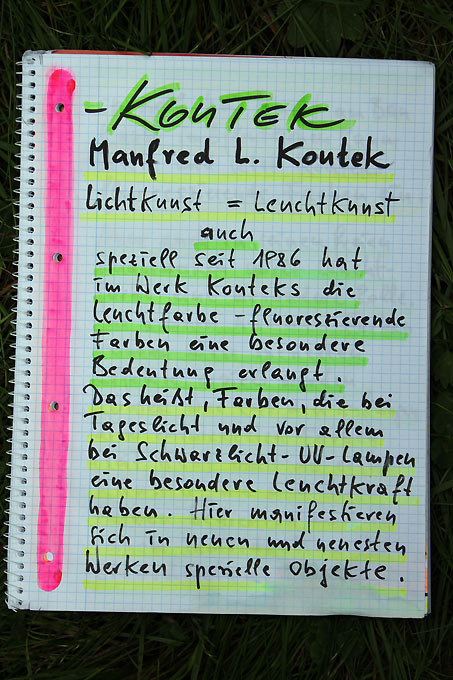 - KOUTEK
Manfred L. Koutek
Lichtkunst = Leuchtkunst
auch
speziell seit 1986 hat
im Werk Kouteks die
Leuchtfarbe - fluoreszierende
Farben eine besondere
Bedeutung erlangt.
Das heißt, Farben, die bei
Tageslicht und vor allem
bei Schwarzlicht-UV-Lampen
eine besondere Leuchtkraft
haben. Hier manifestieren
sich in neuen und neuesten
Werken spezielle Objekte.